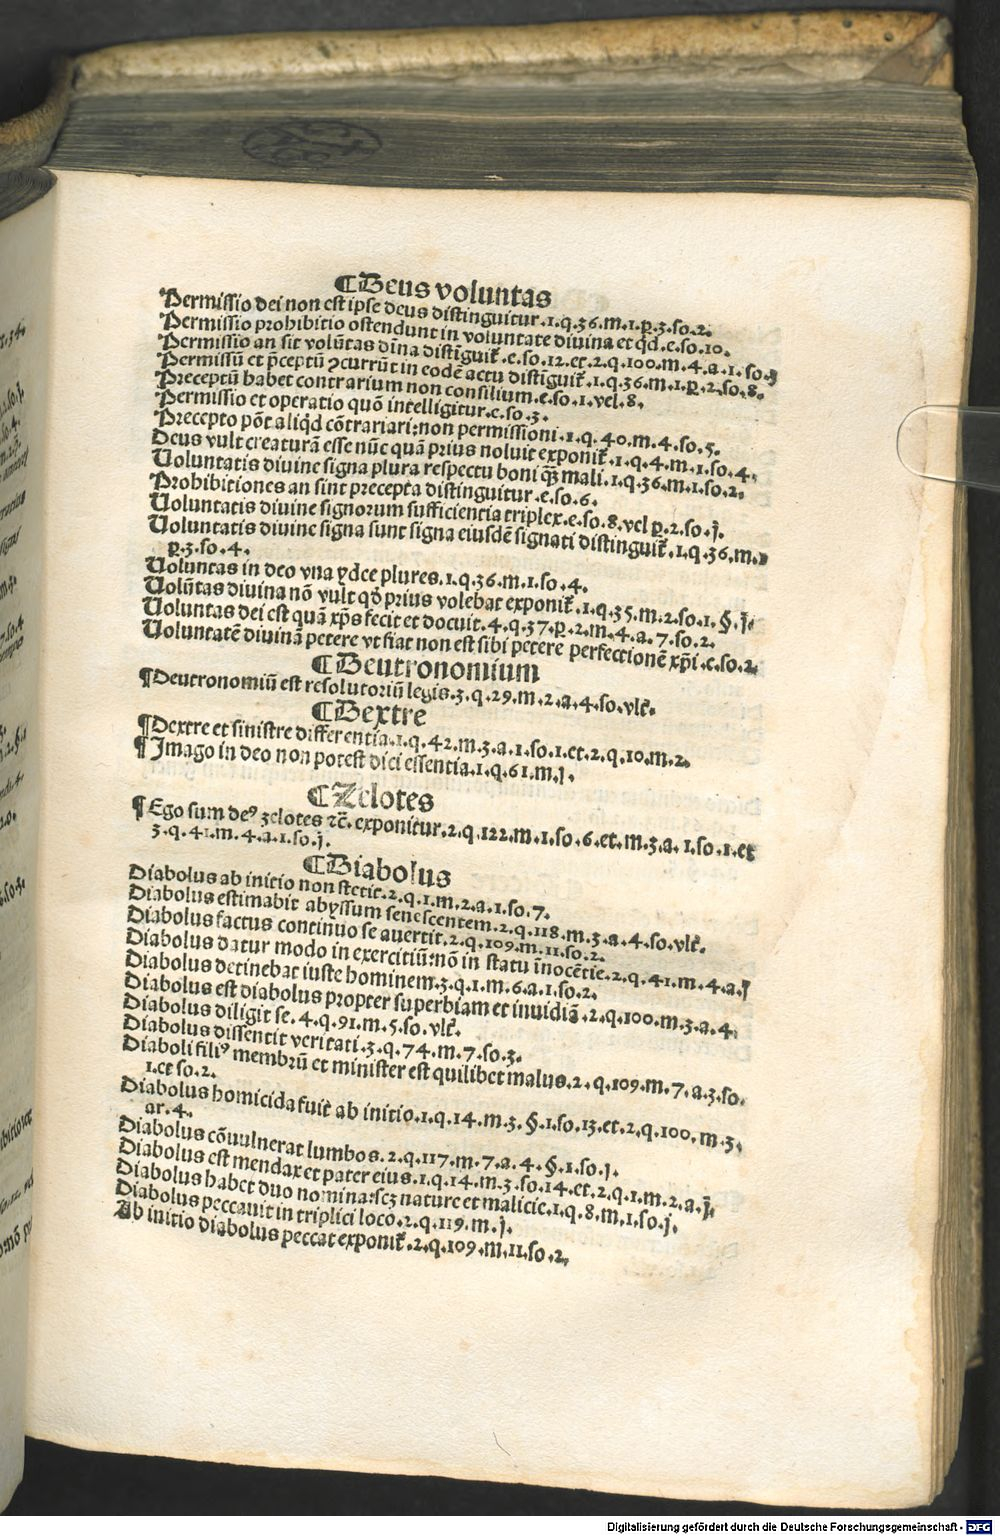 ¶Deus voluntas
Permissio dei non est ipse deus distinguitur.1.q.36.m.1.p̱.3.so.2.
Permissio prohibitio ostendunt in voluntate divina et qd̄.e.so.10.
Permissio an sit volūtas dīna distīguit᷑.e.so.12.et.2.q.100.m.4.a.1.so.j
Permissū et p̄ceptū ꝯcurrūt in eodē actu distīguit᷑.1.q.36.m.1.p̱.2.so.8.
Preceptū habet contrarium non consilium.e.so.1.vel.8.
Permissio et operatio quō intelligitur.e.so.3.
Precepto pōt aliqd cōtrariari:non permissioni.1.q.40.m.4.so.5.
Deus vult creaturā esse nūc quā prius noluit exponit᷑.1.q.4.m.1.so.4.
Voluntatis divine signa plura respectu boni qꝫ mali.1.q.36.m.1.so.2.
Prohibitiones an sint precepta distinguitur.e.so.6.
Voluntatis divine signorum sufficientia triplex.e.so.8.vel p̱.2.so.j.
Voluntatis divine signa sunt signa eiusdē signati distinguit᷑.1.q.36.m.1
p̱.3.so.4.
Voluntas in deo vna ydee plures.1.q.36.m.1.so.4.
Volūtas divina nō vult qd̄ prius volebat exponit᷑.1.q.35.m.2.so.1.§.j.
Voluntas dei est quā xp̄s fecit et docuit.4.q.37.p̱.2.m.4.a.7.so.2.
Voluntatē divinā petere vt fiat non est sibi petere perfectionē xp̄i.e.so.2.
¶Deutronomium
¶Deutronomiū est resolutoriū legis.3.q.29.m.2.a.4.so.vlt᷑.
¶Dextre
¶Dextre et sinistre differentia.1.q.42.m.3.a.1.so.1.et.2.q.10.m.2.
¶Imago in deo non potest dici essentia.1.q.61.m.j.
¶Zelotes
¶Ego sum deꝰ zelotes ⁊c̄.exponitur.2.q.122.m.1.so.6.et.m.3.a.1.so.1.et
3.q.41.m.4.a.1.so.j.
¶Diabolus
Diabolus ab initio non stetit.2.q.1.m.2.a.1.so.7.
Diabolus estimabit abyssum senescentem.2.q.118.m.3.a.4.so.vlt᷑.
Diabolus factus continuo se avertit.2.q.109.m.11.so.2.
Diabolus datur modo in exercitiū:nō in statu īnocētie.2.q.41.m.4.a.j
Diabolus detinebat iuste hominem.3.q.1.m.6.a.1.so.2.
Diabolus est diabolus propter superbiam et invidiā.2.q.100.m.3.a.4.
Diabolus diligit se.4.q.91.m.5.so.vlt᷑.
Diabolus dissentit veritati.3.q.74.m.7.so.3.
Diaboli filiꝰ membrū et minister est quilibet malus.2.q.109.m.7.a.3.so.
1.et so.2.
Diabolus homicida fuit ab initio.1.q.14.m.3.§.1.so.13.et.2.q.100.m.3.
ar.4.
Diabolus cōvulnerat lumbos.2.q.117.m.7.a.4.§.1.so.j.
Diabolus est mendax et pater eius.1.q.14.m.3.so.14.et.2.q.1.m.2.a.j.
Diabolus habet duo nomina:scꝫ nature et malicie.1.q.8.m.1.so.j.
Diabolus peccavit in triplici loco.2.q.119.m.j.
Ab initio diabolus peccat exponit᷑.2.q.109.m.11.so.2.
Digitalisierung gefördert durch die Deutsche Forschungsgemeinschaft - DFG